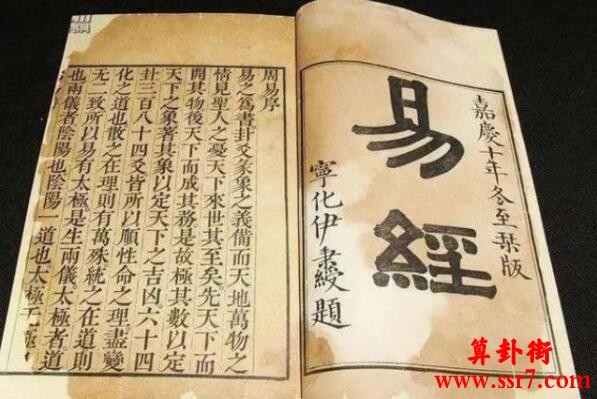 嘉慶十年冬至栞版
易經
寧化伊秉綬題
周易序
易之為書卦爻彖象之義備而天地萬物之
情見聖人之憂天下來世其至矣先天下而
開其物後天下而成其務是故極其數以定
天下之象著其象以定天下之吉凶六十四
卦三百八十四爻皆所以順性命之理盡變
化之道也散之在理則有萬殊統之在道則
无二致所以易有太極是生兩儀太極者道
也兩儀者陰陽也陰陽一道也太極无極
算卦街
www.ssr7.com